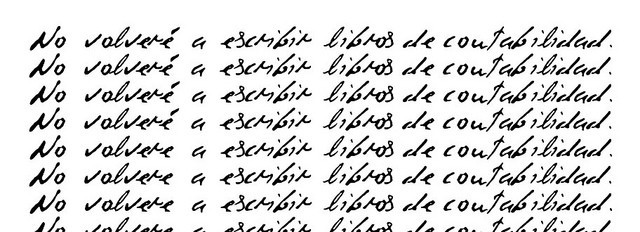 No volveré a escribir libros de contabilidad.
No volveré a escribir libros de contabilidad.
No volveré a escribir libros de contabilidad.
No volveré a escribir libros de contabilidad.
No volvere a escribir libros de contabilidad.
No volvere a escribir libros de contabilidad.
No volvere a escribir libros de contabilidad.
No volvere a escribir libros de contabilidad.